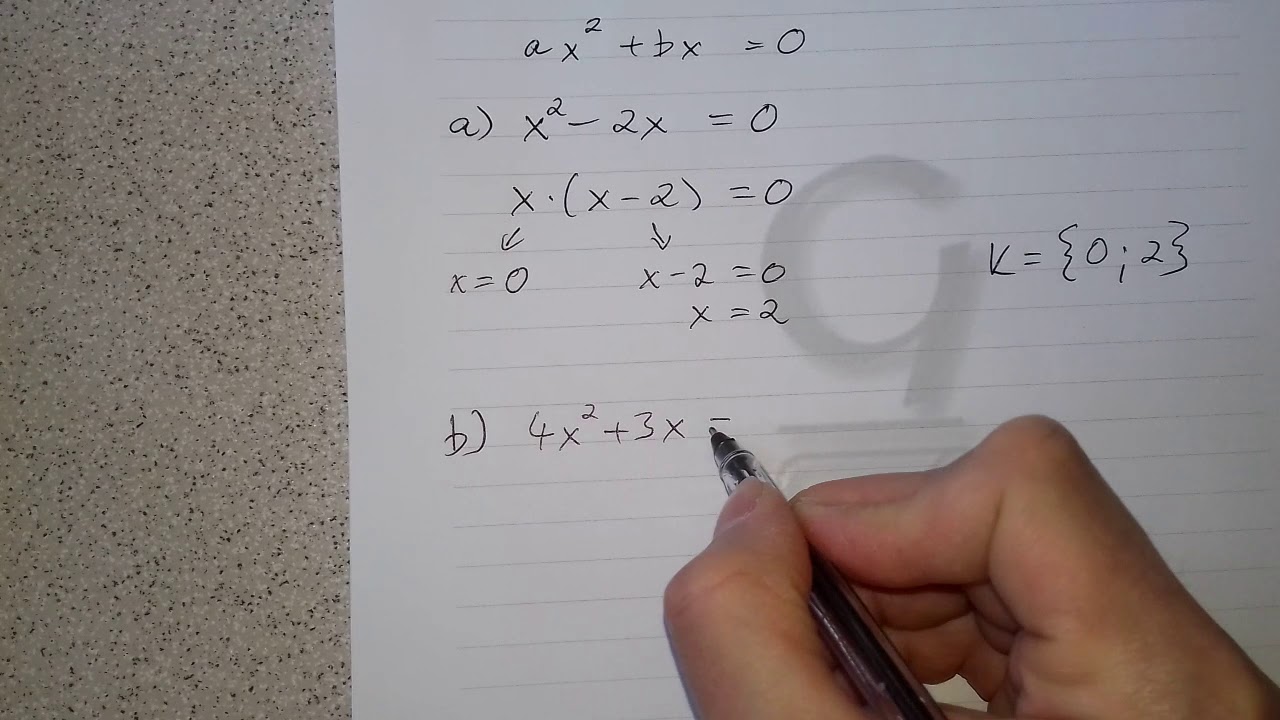 ax² + bx = 0
a) x² - 2x = 0
x · (x - 2) = 0
↙ ↘
x = 0 x - 2 = 0 K = {0; 2}
x = 2
b) 4x² + 3x =